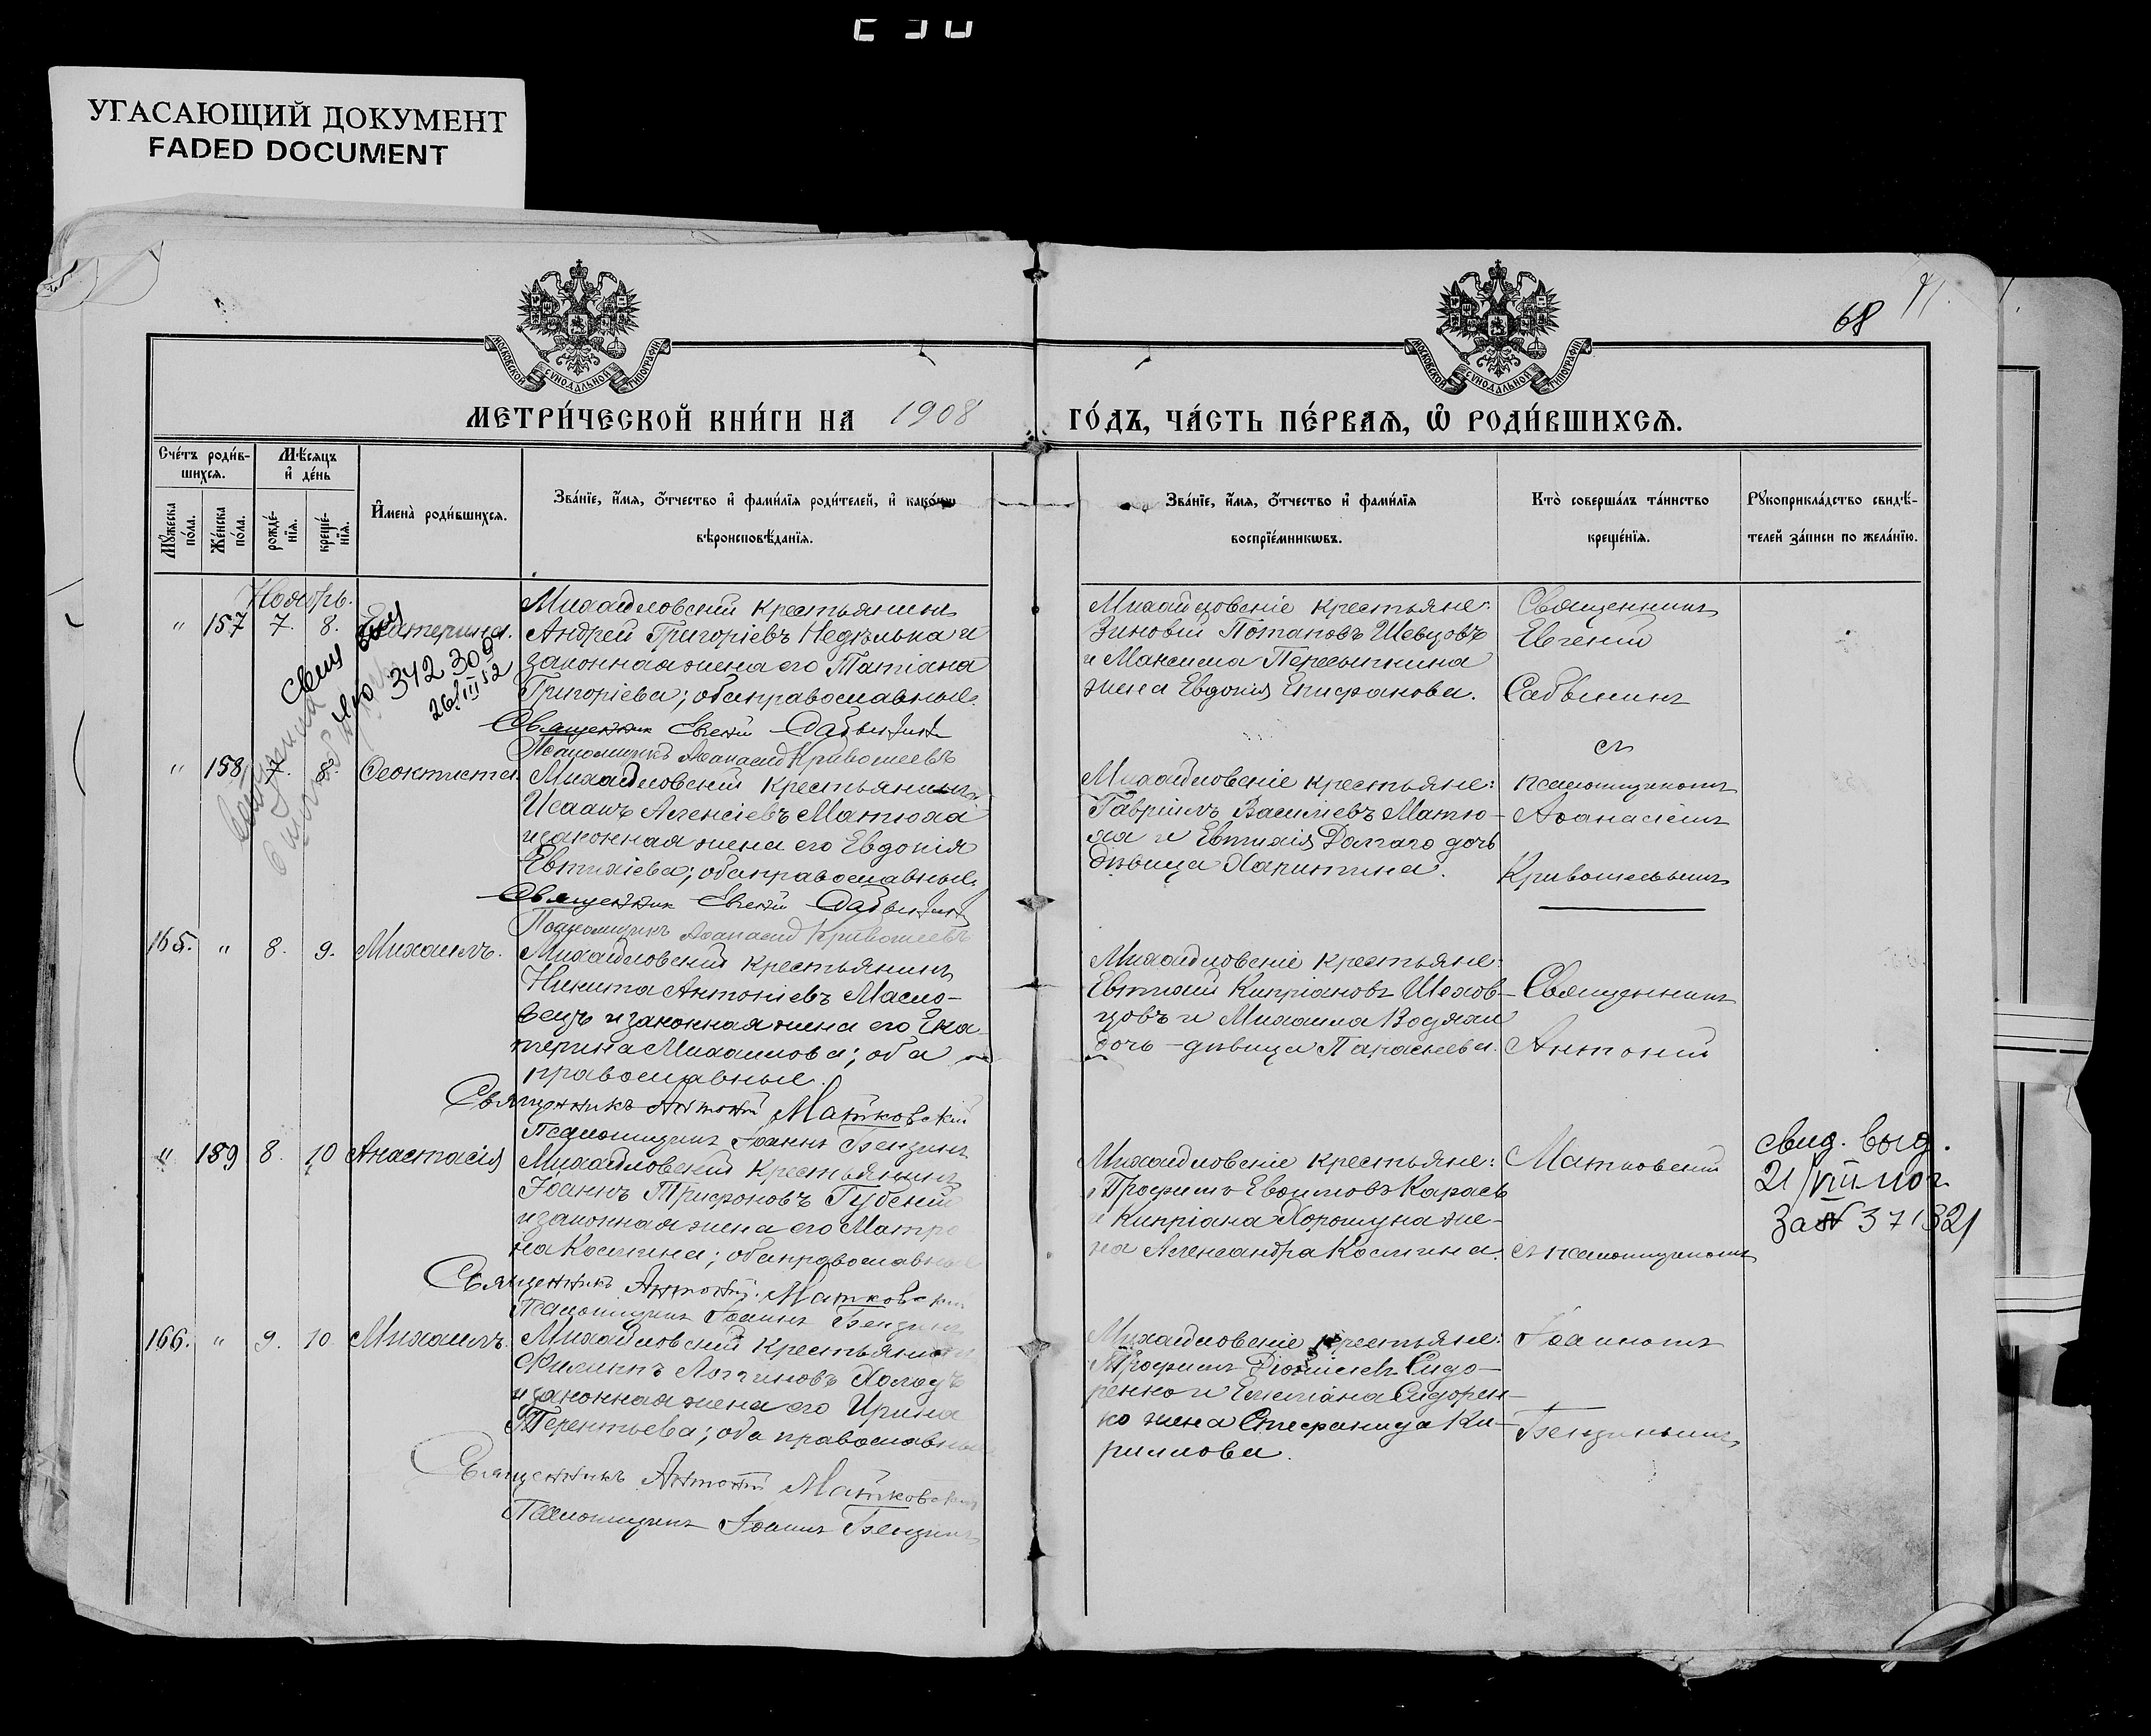 УГАСАЮЩИЙ ДОКУМЕНТ
FADED DOCUMENT
68
МОСКОВСКОЙ СѴНОДАЛЬНОЙ ТИПОГРАФІИ
МОСКОВСКОЙ СѴНОДАЛЬНОЙ ТИПОГРАФІИ
МЕТРИ́ЧЕСКОЙ КНИ́ГИ НА 1908 ГО́ДЪ, ЧА́СТЬ ПЕ́РВАѦ, Ѽ РОДИ́ВШИХСѦ.
Сче́тъ роди́в-
шихсѧ.
Мꙋ́жеска по́ла.
Же́нска по́ла.
Мѣ́сяцъ
и҆ де́нь
рожде́-
нїѧ.
креще́-
нїѧ.
И҆мена̀ роди́вшихсѧ.
Зва́нїе, и҆́мѧ, ѻ҆́тчество и҆ фами́лїѧ роди́телей, и҆ како́гѡ
вѣроисповѣ́данїѧ.
Зва́нїе, и҆́мѧ, ѻ҆́тчество и҆ фами́лїѧ
воспрїе́мникѡвъ.
Кто̀ соверша́лъ та́инство
креще́нїѧ.
Рꙋкоприкла́дство свидѣ́-
телей за́писи по жела́нїю.
Ноябрь.
" 157 7. 8. Екатерина.
Михайловскій крестьянинъ
Андрей Григоріевъ Недѣлька и
законная жена его Татіана
Григоріева; оба православные.
Священник Евгеній Саввинъ
Псаломщикъ Аѳанасій Кривошеевъ
Михайловскіе крестьяне:
Зиновій Потаповъ Шевцовъ
и Максима Пересыпкина
жена Евдокія Епифанова.
Священникъ
Евгеній
Саввинъ
съ
псаломщикомъ
Аѳанасіемъ
Кривошеевымъ
342309
26/III 52
" 158 7. 8. Ѳеоктиста.
Михайловскій крестьянинъ
Исаакъ Алексіевъ Матюха
и законная жена его Евдокія
Евтихіева; оба православные.
Священник Евгеній Саввинъ
Псаломщикъ Аѳанасій Кривошеевъ
Михайловскіе крестьяне:
Гавріилъ Василіевъ Матю-
ха и Евтихія Долгаго дочь
дѣвица Харитина.
165. " 8. 9. Михаилъ.
Михайловскій крестьянинъ
Никита Антоніевъ Масло-
вецъ и законная жена его Ека-
терина Михаилова; оба
православные.
Священникъ Антоній Матковскій
Псаломщикъ Іоаннъ Бензинъ
Михайловскіе крестьяне:
Евтихій Кипріановъ Шехов-
цовъ и Михаила Водяхи
дочь - дѣвица Параскева.
Священникъ
Антоній
Матковскій
съ псаломщикомъ
Іоанномъ
Бензинымъ
" 159 8. 10 Анастасія
Михайловскій крестьянинъ
Іоаннъ Трифоновъ Губскій
и законная жена его Матро
на Космина; оба православные
Священникъ Антоній Матковскій
Псаломщикъ Іоаннъ Бензинъ
Михайловскіе крестьяне:
Трофимъ Евѳимовъ Карась
и Кипріана Хорошуна же-
на Александра Космина.
свид. выд.
21/VIII
за № 371321
166. " 9. 10. Михаилъ.
Михайловскій крестьянинъ
Филиппъ Логгиновъ Холодъ
и законная жена его Ирина
Терентьева; оба православные
Священникъ Антоній Матковскій
Псаломщикъ Іоаннъ Бензинъ
Михайловскіе крестьяне:
Трофимъ Діонисіевъ Сидо-
ренко и Емеліана Сидорен-
ко жена Стефанида Ки-
риллова.